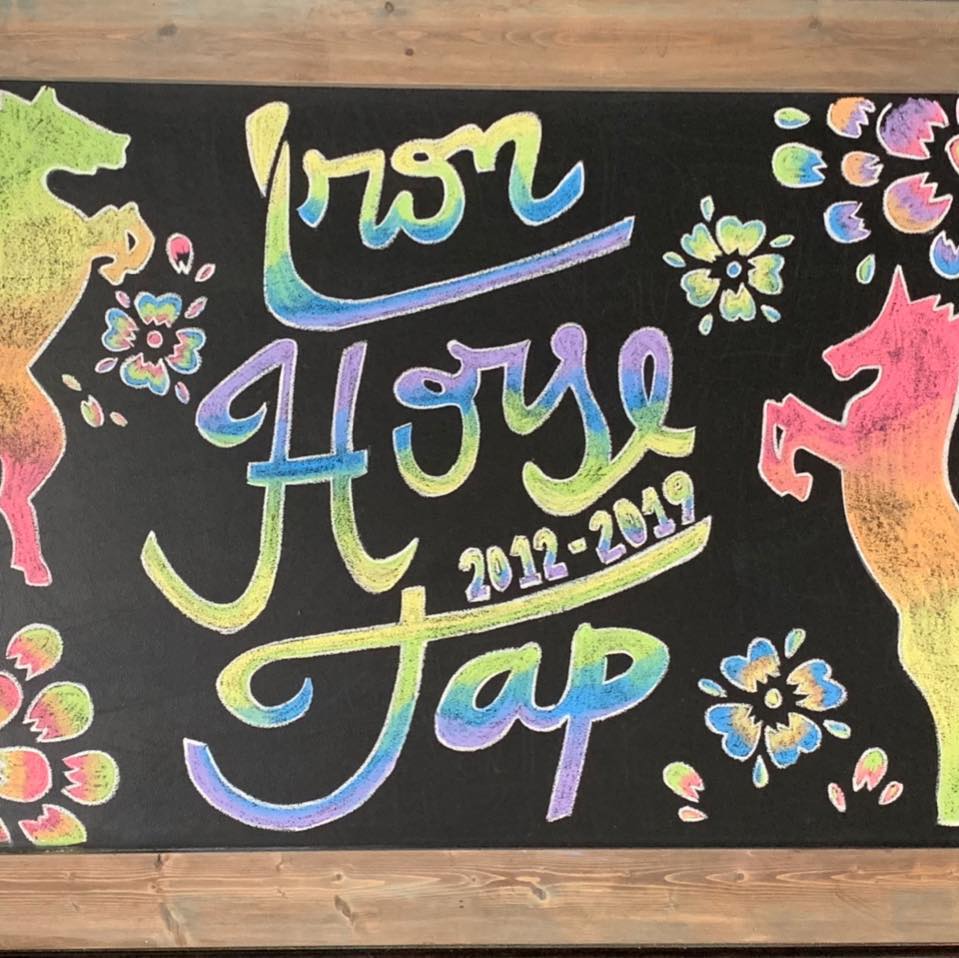 Iron
Horse
2012-2019
Tap